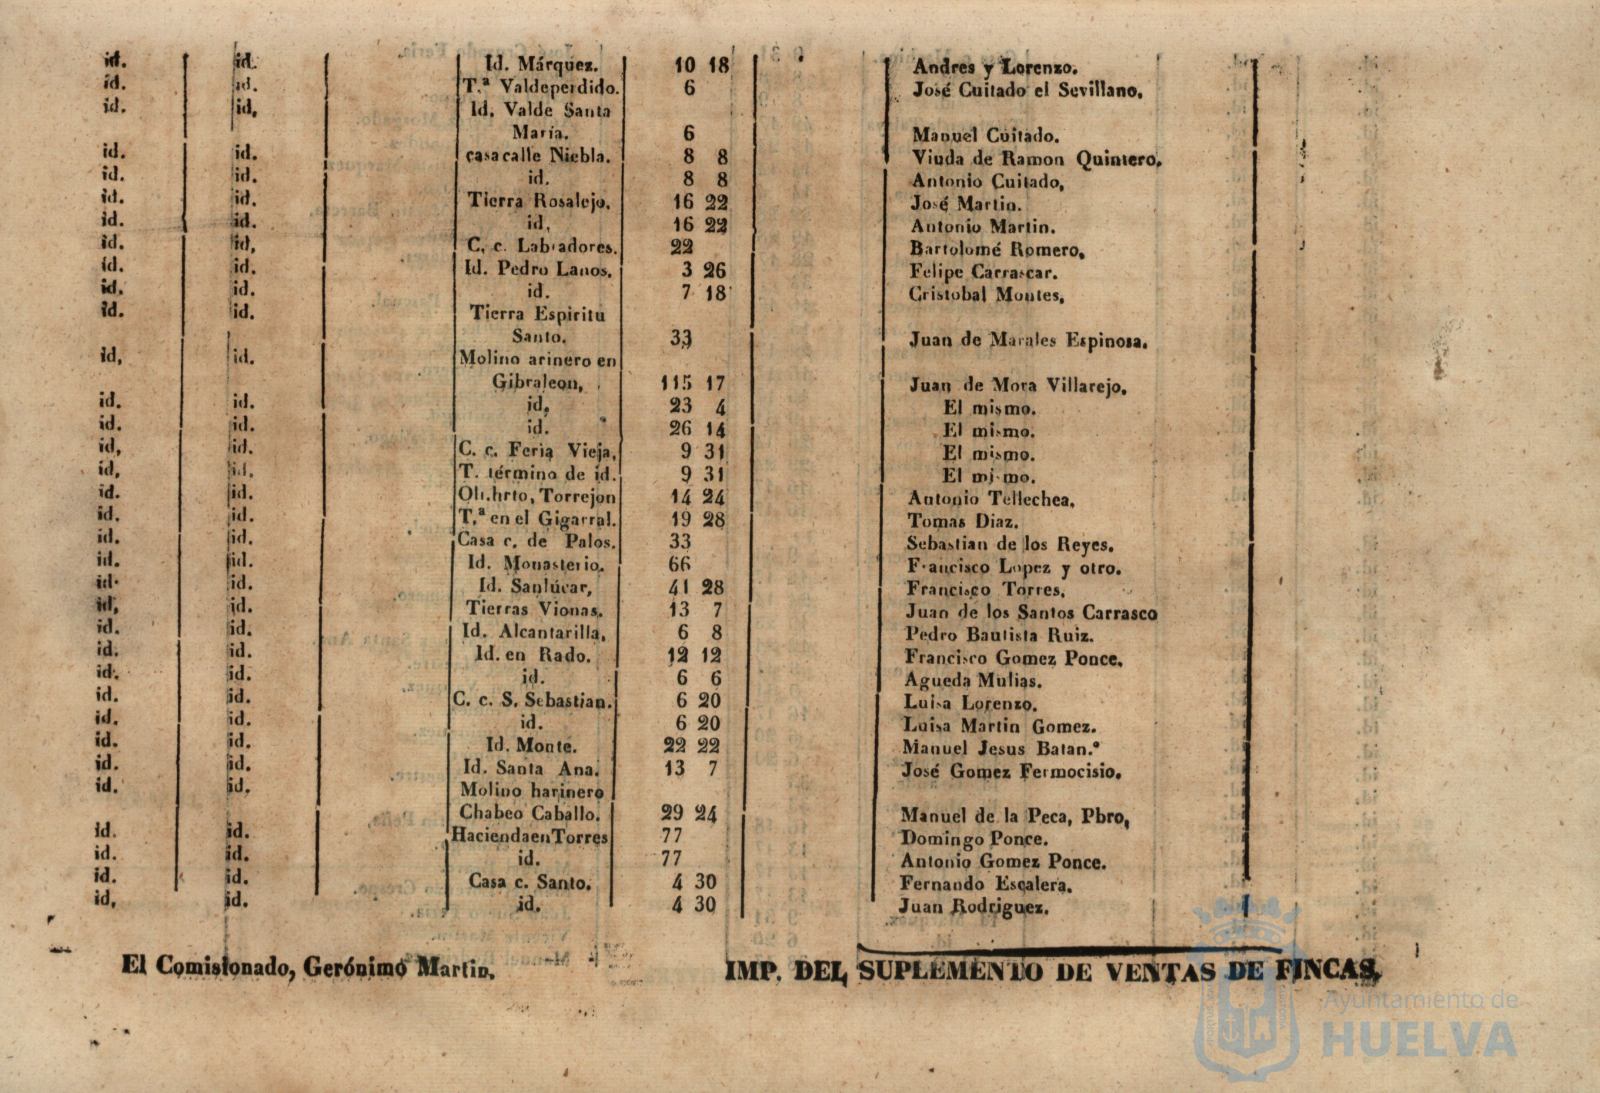 id. id. Id. Márquez. 10 18 Andres y Lorenzo.
id. id. T.ª Valdeperdido. 6 José Cuitado el Sevillano.
id. id, Id. Valde Santa
María. 6 Manuel Cuitado.
id. id. casa calle Niebla. 8 8 Viuda de Ramon Quintero.
id. id. id. 8 8 Antonio Cuitado,
id. id. Tierra Rosalejo. 16 22 José Martin.
id. id. id, 16 22 Antonio Martin.
id. id, C. c. Labradores. 22 Bartolomé Romero,
id. id. Id. Pedro Lanos. 3 26 Felipe Carrascar.
id. id. id. 7 18 Cristobal Montes,
id. id. Tierra Espiritu
Santo. 33 Juan de Marales Espinosa.
id, id. Molino arinero en
Gibraleon, 115 17 Juan de Mora Villarejo,
id. id. id, 23 4 El mismo.
id. id. id. 26 14 El mismo.
id, id. C. c. Feria Vieja, 9 31 El mismo.
id, id. T. término de id. 9 31 El mismo.
id. id. Oli.hrto, Torrejon 14 24 Antonio Tellechea,
id. id. T.ª en el Gigarral. 19 28 Tomas Diaz.
id. id. Casa c. de Palos. 33 Sebastian de los Reyes.
id. id. Id. Monasterio. 66 Francisco Lopez y otro.
id. id. Id. Sanlúcar, 41 28 Francisco Torres.
id, id. Tierras Vionas. 13 7 Juan de los Santos Carrasco
id. id. Id. Alcantarilla, 6 8 Pedro Bautista Ruiz.
id. id. Id. en Rado. 12 12 Francisco Gomez Ponce.
id. id. id. 6 6 Agueda Mulias.
id. id. C. c. S. Sebastian. 6 20 Luisa Lorenzo.
id. id. id. 6 20 Luisa Martin Gomez.
id. id. Id. Monte. 22 22 Manuel Jesus Batan.º
id. id. Id. Santa Ana. 13 7 José Gomez Fermocisio.
id. id. Molino harinero
Chabeo Caballo. 29 24 Manuel de la Peca, Pbro,
id. id. Hacienda en Torres 77 Domingo Ponce.
id. id. id. 77 Antonio Gomez Ponce.
id. id. Casa c. Santo. 4 30 Fernando Escalera.
id, id. id. 4 30 Juan Rodriguez.
El Comisionado, Gerónimo Martin.
IMP. DEL SUPLEMENTO DE VENTAS DE FINCAS.
Ayuntamiento de
HUELVA